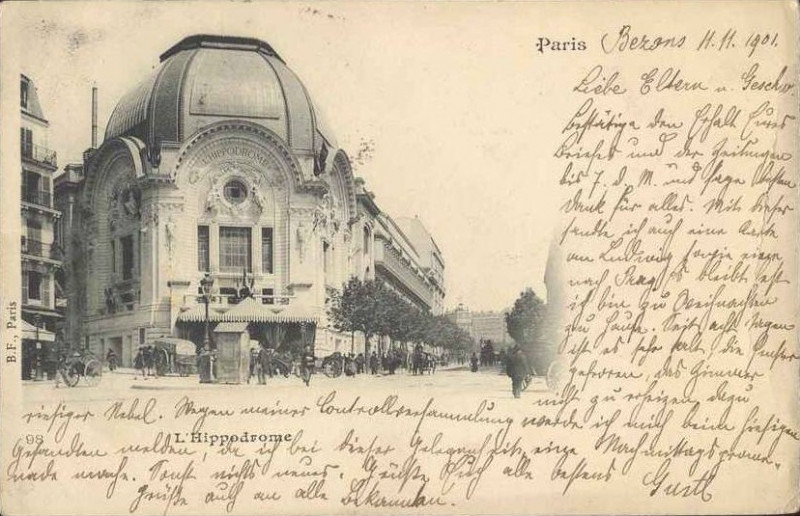 Paris Bezons 11.11.1901.
Liebe Eltern u. Geschw.
bestätige den Erhalt Eures
Briefes und der Zeitungen
bis 7. d. M. und sage besten
Dank für alles. Mit dieser
sandte ich auch eine Carte
an Ludwig sowie eine
nach Prag. Es bleibt est
ich bin zu Weihnachten
zu Hause. Seit acht Tagen
ist es sehr kalt, die Fenster
gefroren, das Zimmer
nicht zu erheizen, dazu
riesiger Nebel. Wegen meiner Controllversammlung werde ich mich beim hiesigen
Gesandten melden, da ich bei dieser Gelegenheit eine Nachmittagsprome-
nade mache. Sonst nichts neues. Grüßt Euch alle bestens
Grüße auch an alle Bekannten. Gustl
HIPPODROME
98 L'Hippodrome
B.F., Paris